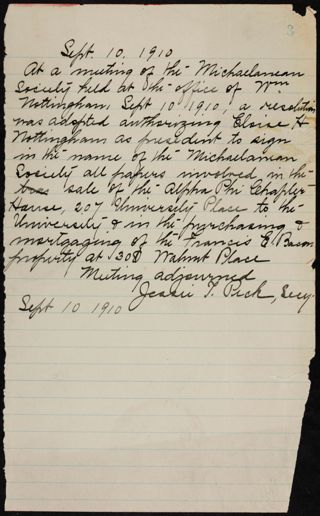 3
Sept. 10, 1910
At a meeting of the Michaelanean
Society held at the office of Wm
Nottingham, Sept 10 1910, a resolution
was adopted authorizing Eloise H
Nottingham as president to sign
in the name of the Michaelanean
Society all papers involved in the
sale of the Alpha Phi Chapter
House, 207 University Place to the
University & in the purchasing &
mortgaging of the Francis E Bacon
property at 308 Walnut Place
Meeting adjourned
Jessie T. Peck, Secy.
Sept 10 1910